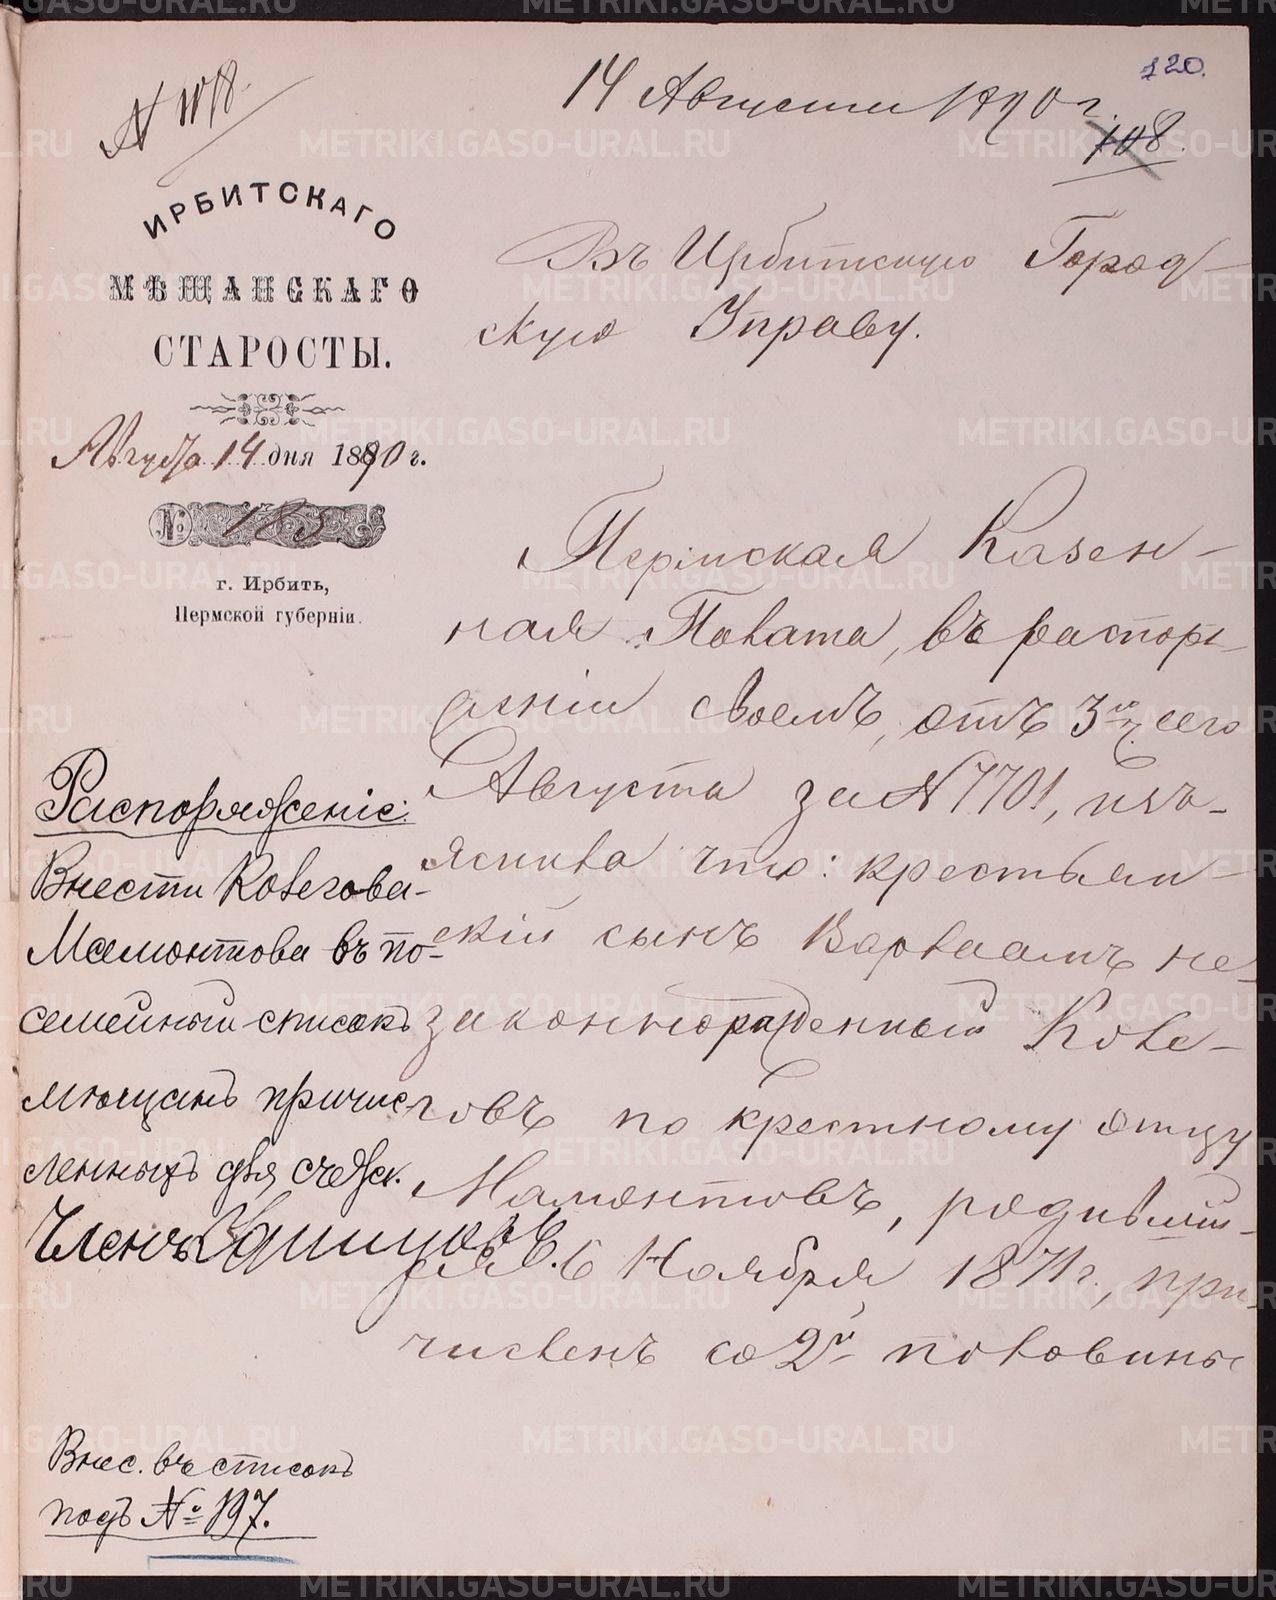 120.
14 Августа 1890 г.
108.
ИРБИТСКАГО
МѢЩАНСКАГО
СТАРОСТЫ.
Августа 14 дня 1890 г.
№ 185
г. Ирбить,
Пермской губерніи.
Въ Ирбитскую Город-
скую Управу.
Пермская Казен-
ная Палата, въ распоря-
женіи своемъ, отъ 3го сего
Августа за № 7701, изъ-
яснила что: крестьян-
скій сынъ Варлаамъ не-
законнорожденный Коле-
говъ по крестному отцу
Мамонтовъ, родившій-
ся 6 Ноября 1871 г., при-
численъ со 2й половины
Распоряженіе:
Внести Колегова-
Мамонтова въ по-
семейный списокъ
мѣщанъ причис-
ленныхъ для счета.
Членъ
Внес. въ списокъ
подъ № 197.
METRIKI.GASO-URAL.RU